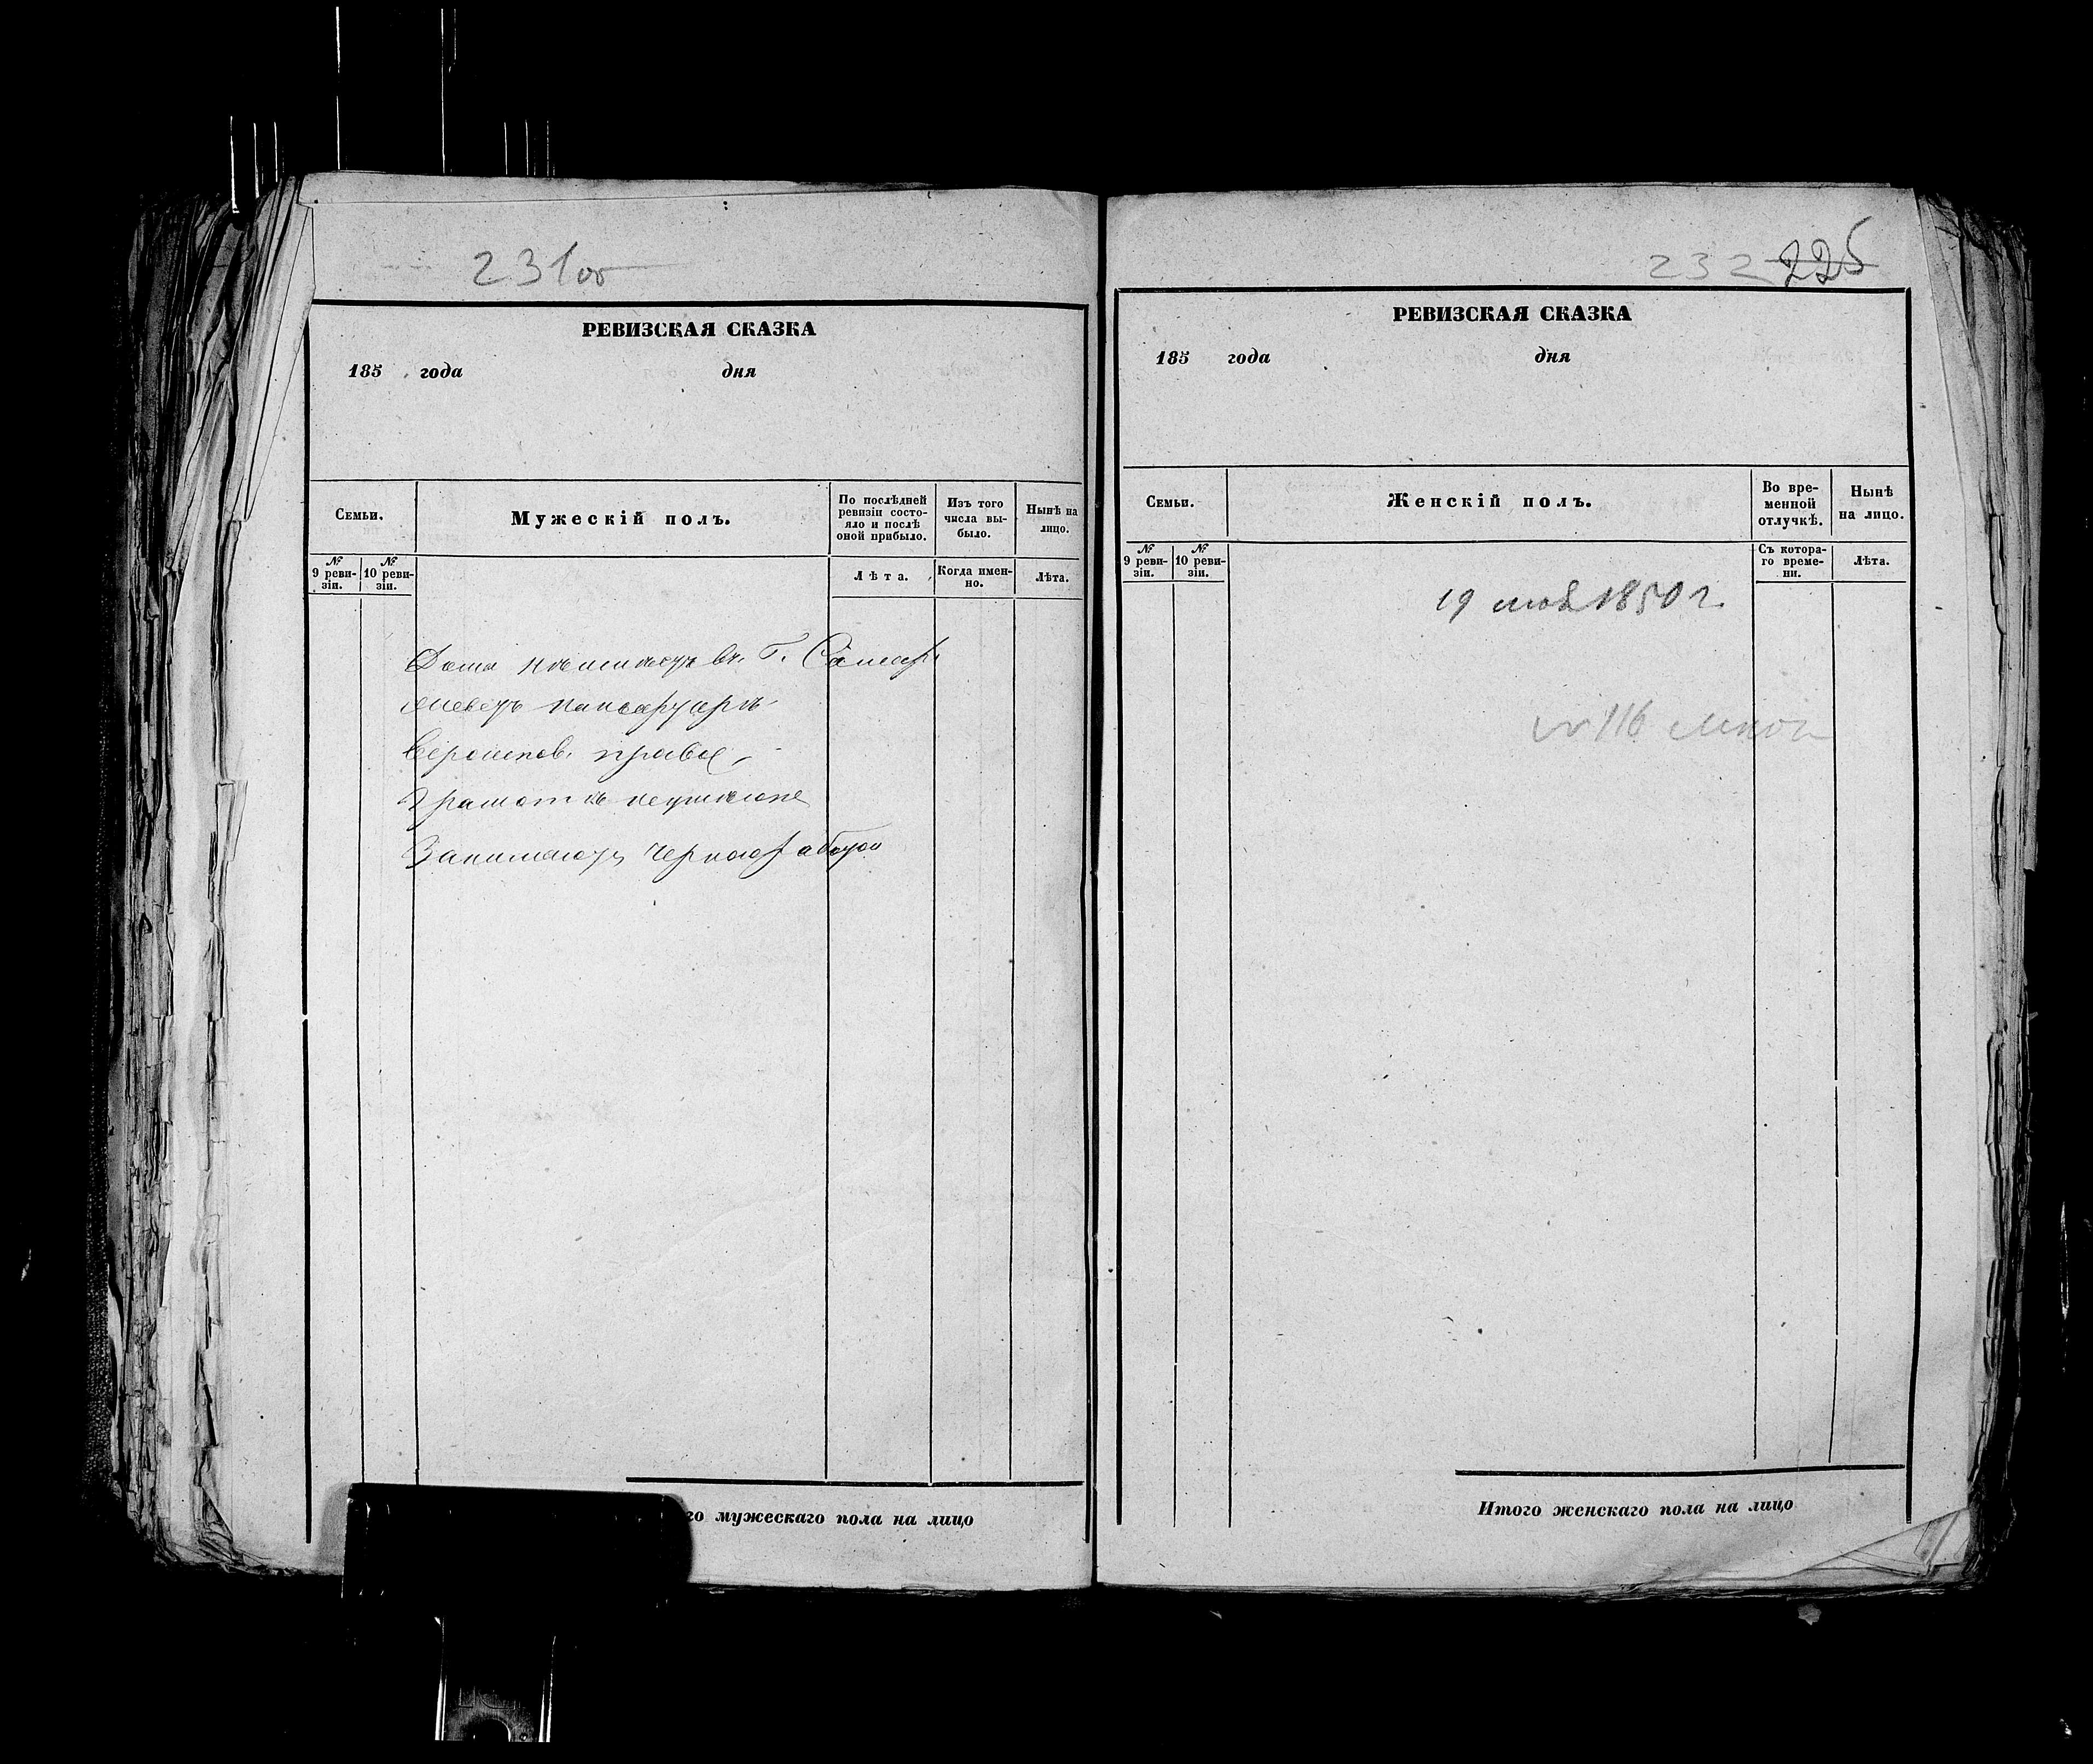 231об
РЕВИЗСКАЯ СКАЗКА
185 года дня
Семьи.
Мужескій полъ.
По послѣдней ревизіи состо-
яло и послѣ
оной прибыло.
Изъ того
числа вы-
было.
Нынѣ на
лицо.
№
9 реви-
зіи.
№
10 реви-
зіи.
Лѣта.
Когда имен-
но.
Лѣта.
Дома не имѣетъ въ Г. Самар.
живетъ на квартирѣ
Вѣроисповѣ. правос.
Грамотѣ не
Занимаются черной работой
го мужескаго пола на лицо
232 225
РЕВИЗСКАЯ СКАЗКА
185 года дня
Семьи.
Женскій полъ.
Во вре-
менной
отлучкѣ.
Нынѣ
на лицо.
№
9 реви-
зіи.
№
10 реви-
зіи.
Съ котора-
го време-
ни.
Лѣта.
19 1850 г.
№ 116
Итого женскаго пола на лицо